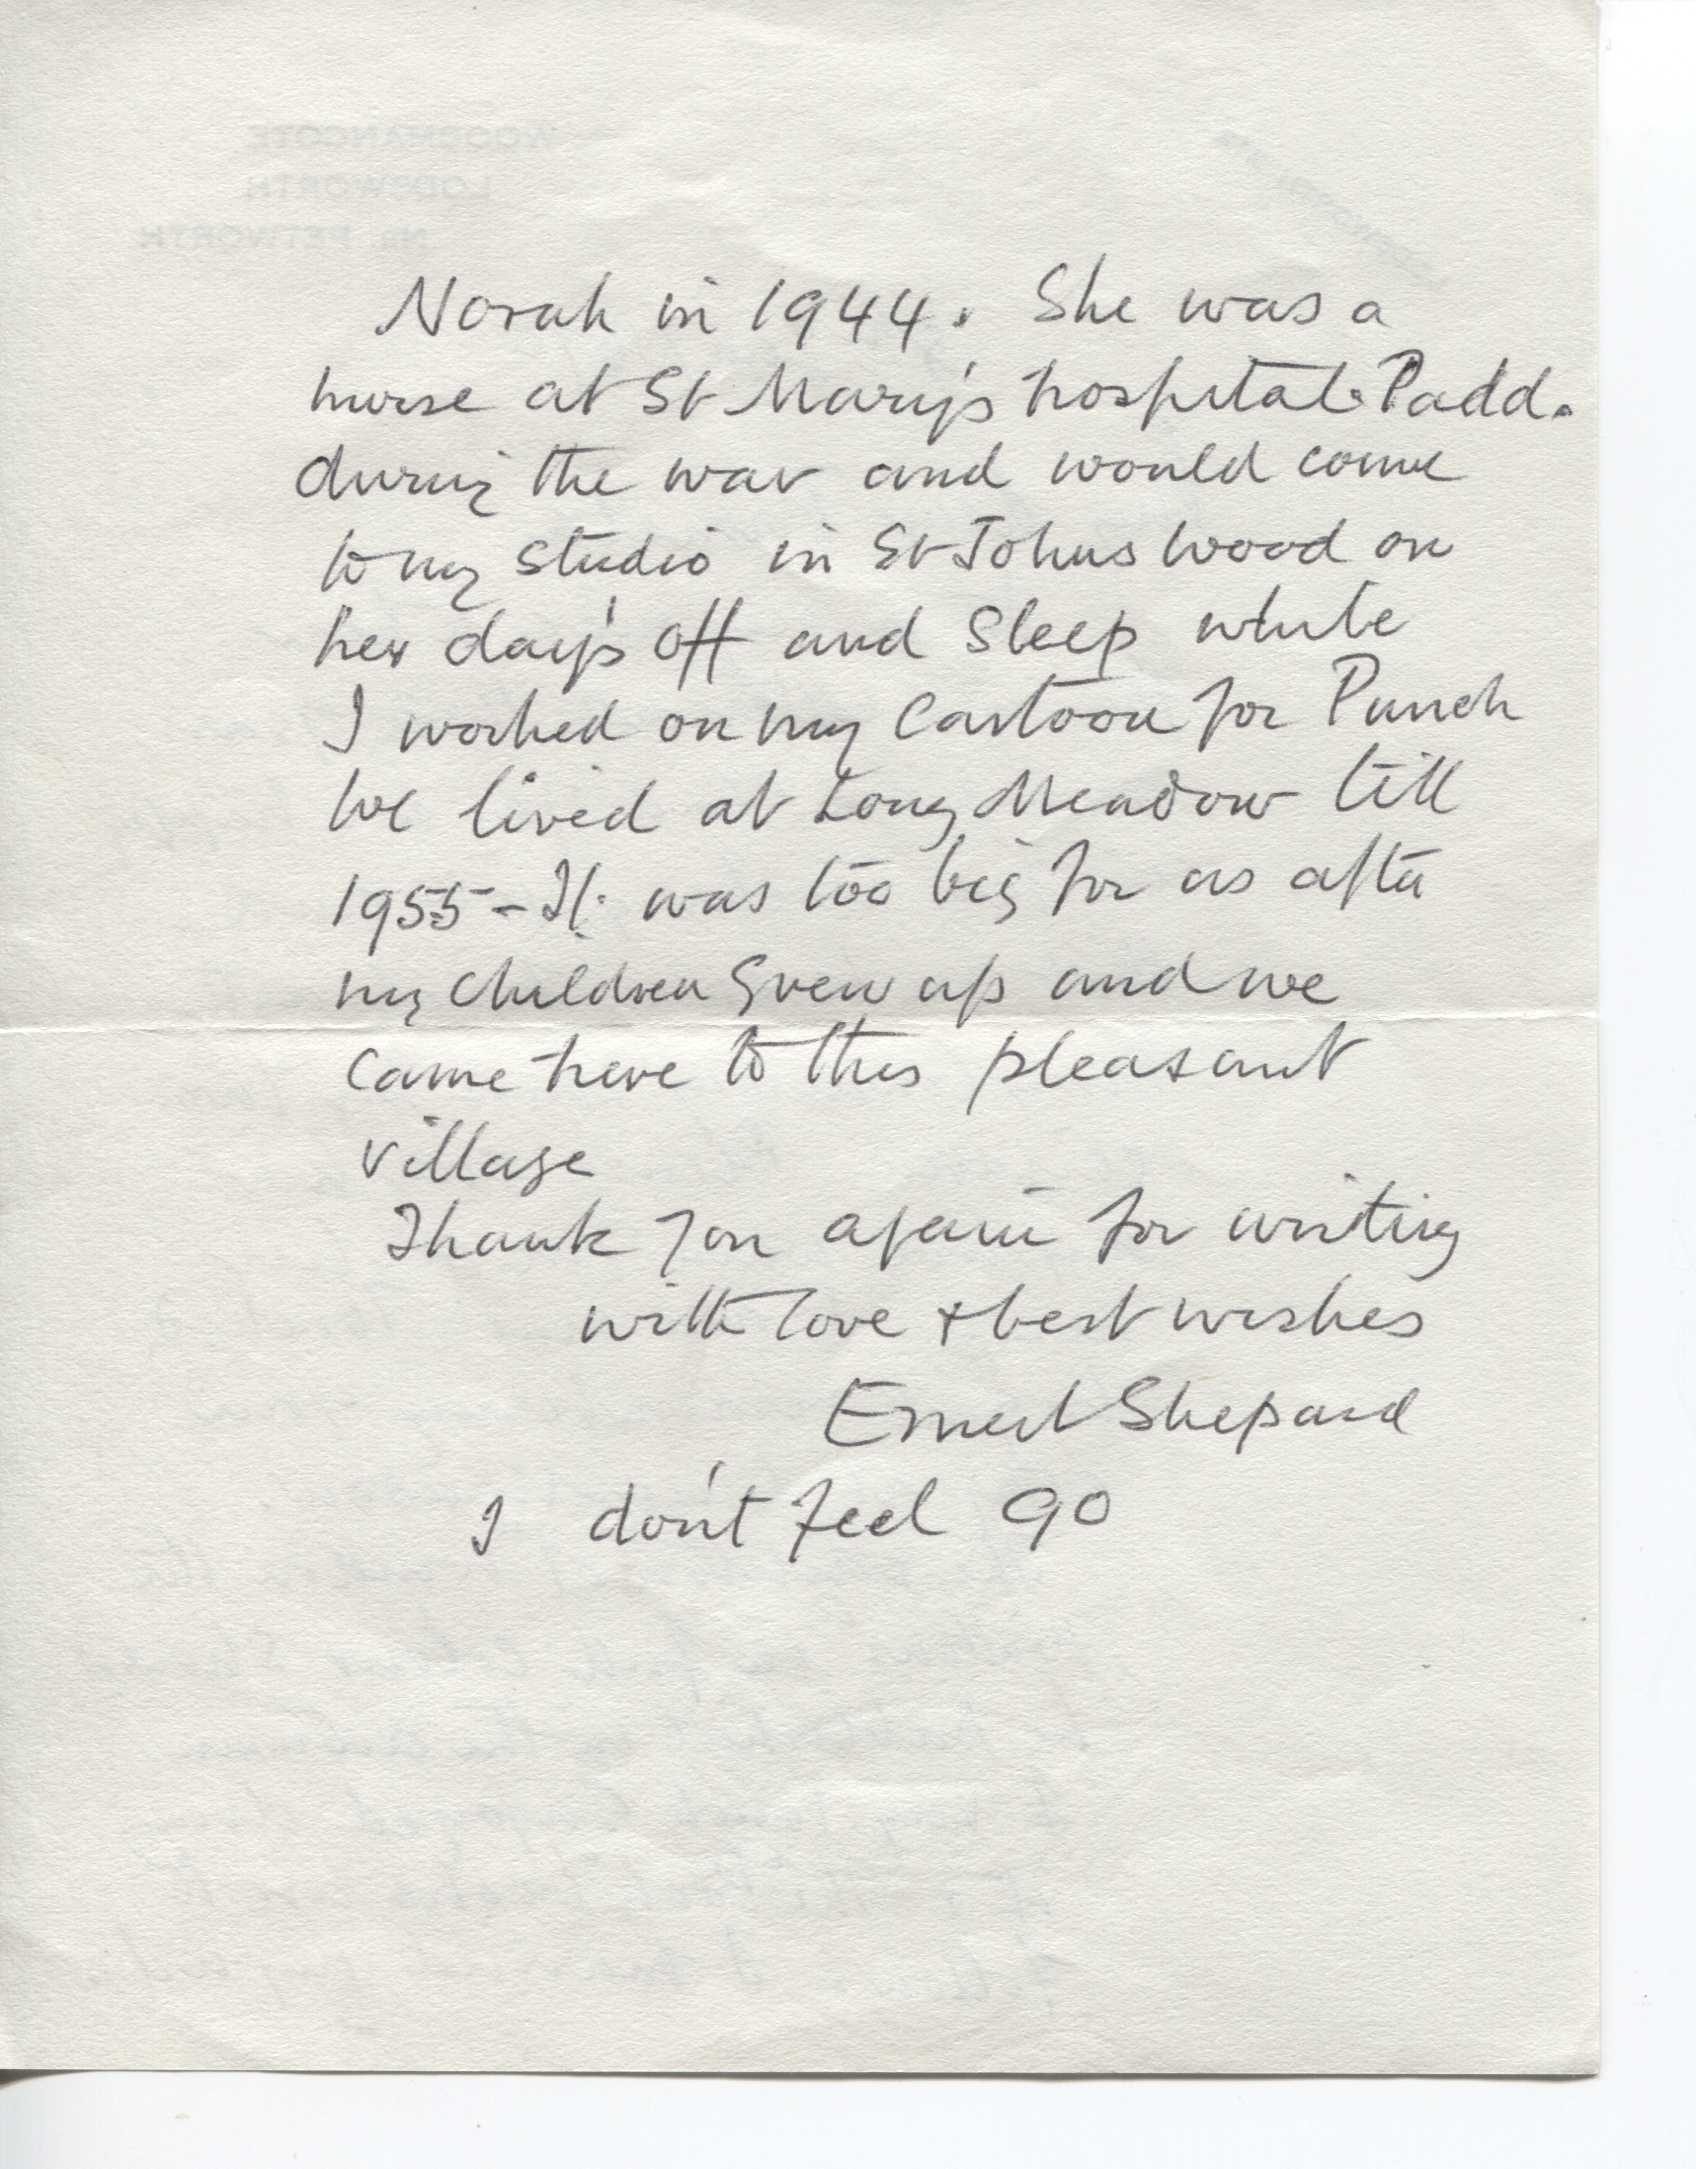 Norah in 1944. She was a
nurse at St Mary's hospital. Padd.
during the war and would come
to my studio in St Johns Wood on
her day's off and sleep while
I worked on my Cartoon for Punch
We lived at Long Meadow till
1955 - It was too big for us after
my children grew up and we
came here to this pleasant
village
Thank you again for writing
with love + best wishes
Ernest Shepard
I don't feel 90
WOODMANCOTE
LODSWORTH
NR. PETWORTH